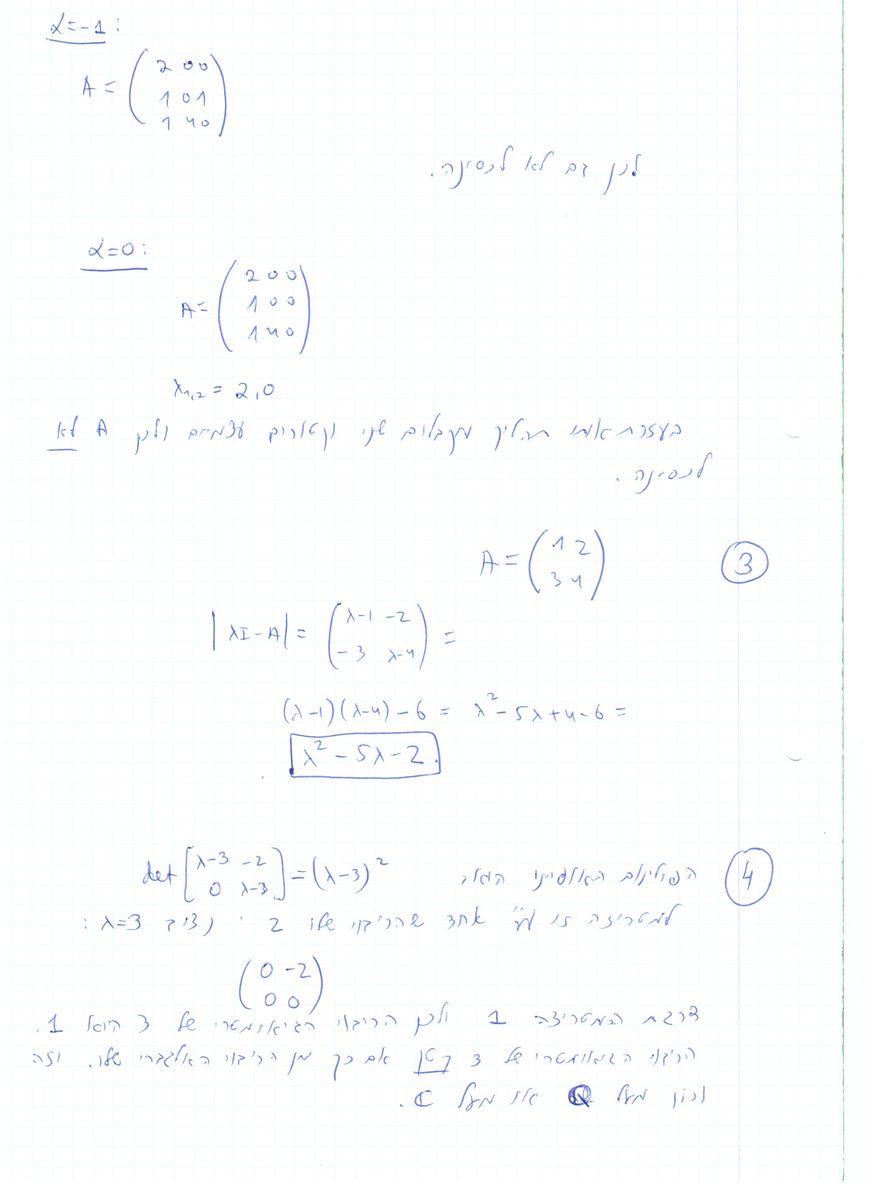 α=-1:
A = (2 0 0
1 0 1
1 4 0)
לכן גם לא לכסינה.
α=0:
A = (2 0 0
1 0 0
1 4 0)
λ1,2 = 2,0
בעזרת אותו תהליך מקבלים שני וקטורים עצמיים ולכן A לא
לכסינה.
③ A = (1 2
3 4)
|λI-A| = (λ-1 -2
-3 λ-4) =
(λ-1)(λ-4)-6 = λ²-5λ+4-6 =
λ²-5λ-2.
④ הפולינום האופייני det[λ-3 -2
0 λ-3] = (λ-3)²
למטריצה זו ע"ע אחד שהריבוי שלו 2. נציב λ=3:
(0 -2
0 0)
דרגת המטריצה 1 ולכן הריבוי הגיאומטרי של 3 הוא 1.
הריבוי הגיאומטרי של 3 קטן אם כך מן הריבוי האלגברי שלו. וזה
נכון מעל Q או מעל C.